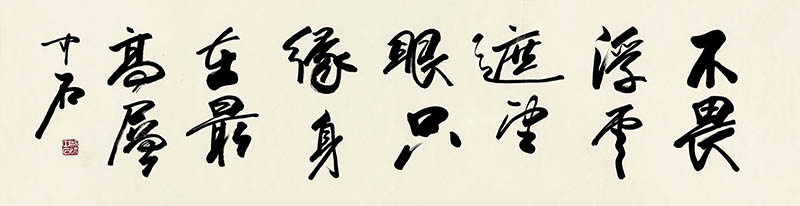 不畏
浮雲
遮望
眼只
緣身
在最
高層
中石